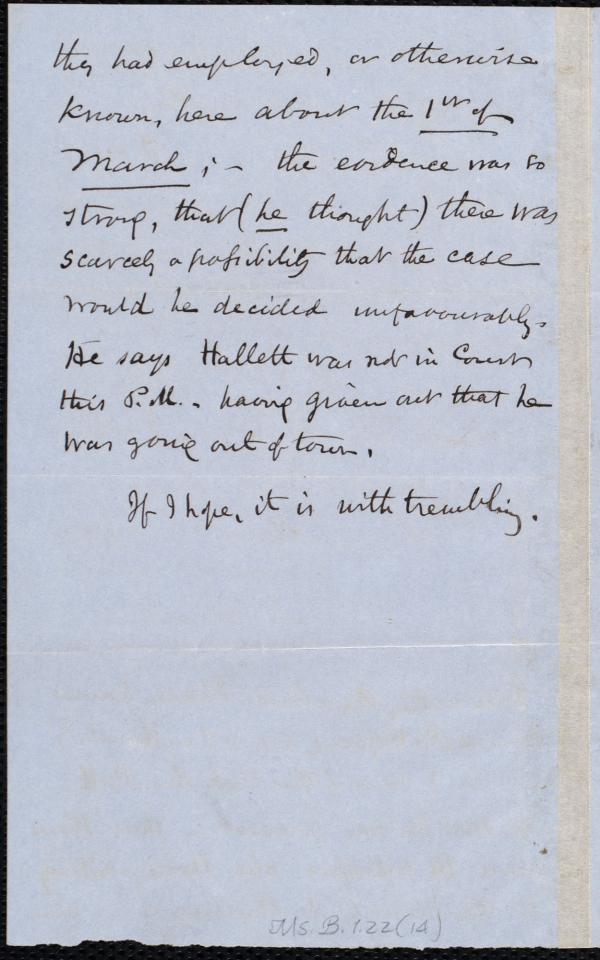 they had employed, or otherwise
known, here about the 1st of
March; – the evidence was so
strong, that (he thought) there was
scarcely a possibility that the case
would be decided unfavourably.
He says Hallett was not in Court
this P.M. – having given out that he
was going out of town.
If I hope, it is with trembling.
Ms. B. 1.22 (14)